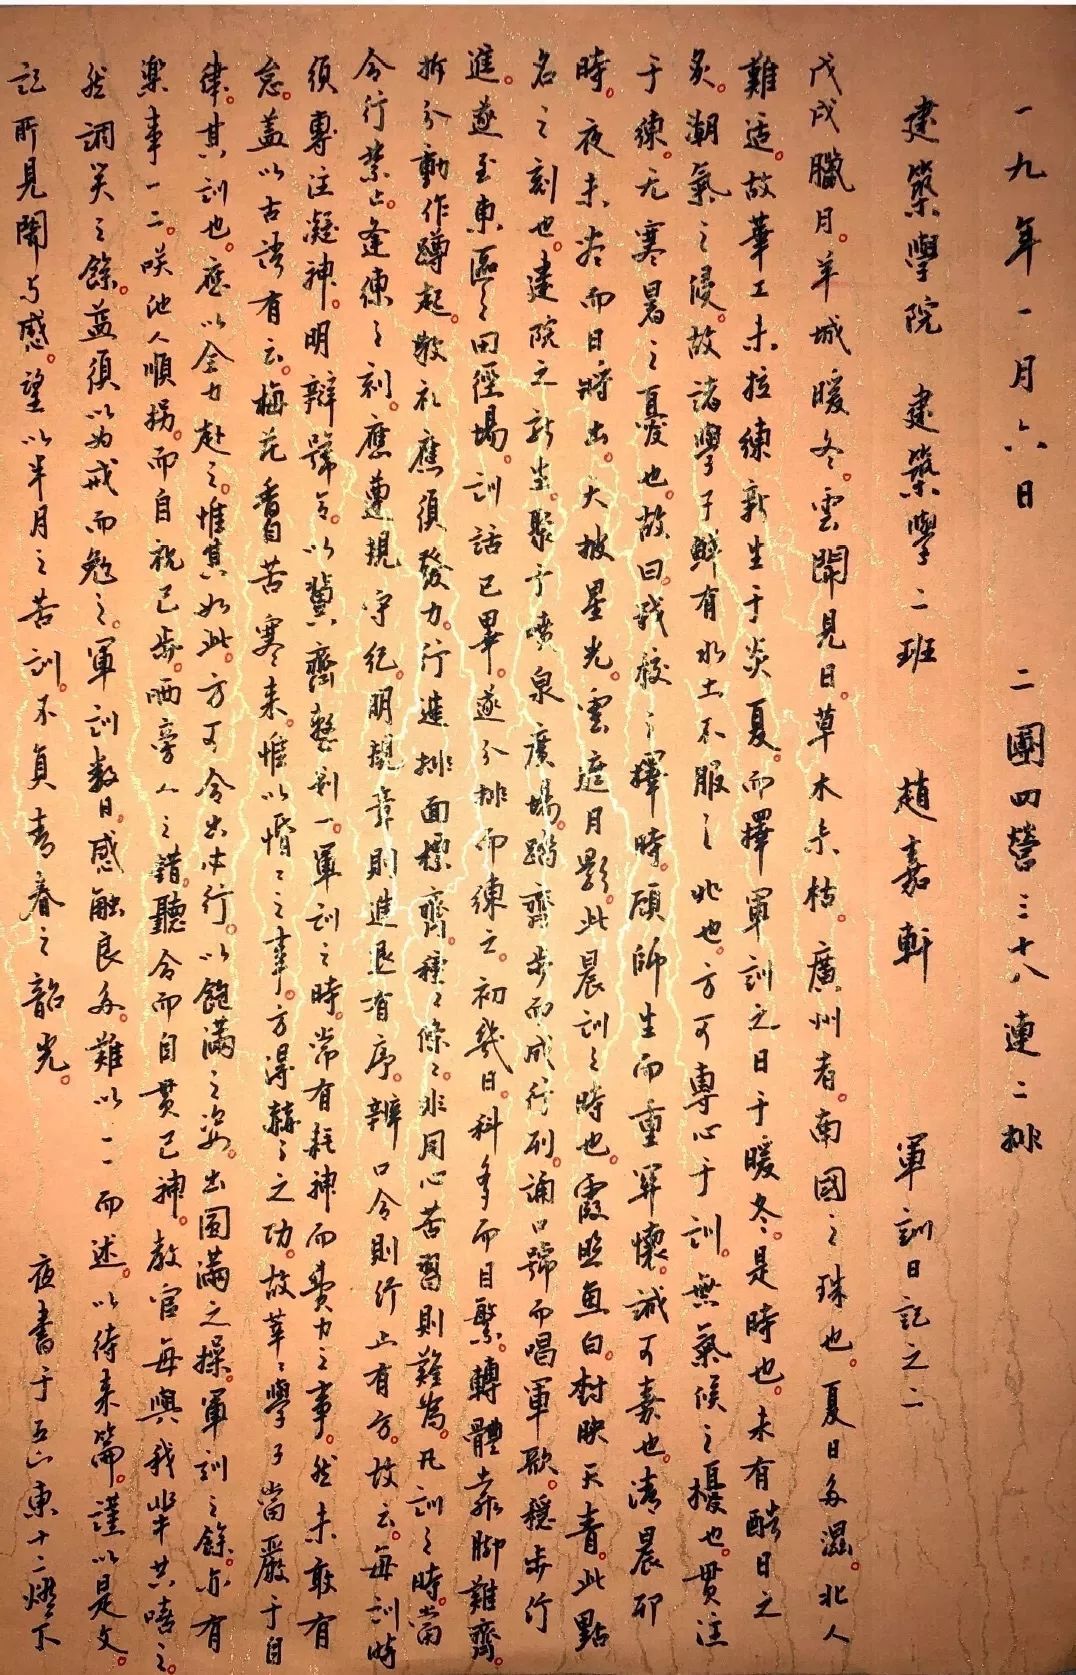 一九年一月六日 二團四營三十八連二排
建築學院 建築學二班 趙嘉軒 軍訓日記之二
戊戌臘月。羊城暖冬。雲開見日。草木未枯。廣州者。南國之珠也。夏日多濕。北人
難适。故華工未拉練新生于炎夏。而擇軍訓之日于暖冬。是時也。未有酷日之
炙。潮氣之浸。故諸學子鮮有水土不服之兆也。方可專心于訓。無氣候之擾也。貫注
于練。无寒暑之憂也。故曰我校之擇時。顧師生而重群懷。誠可嘉也。清晨卯
時。夜未央而日將出。大披星光。雲遮月影。此晨訓之時也。霞照魚白。樹映天青。此點
名之刻也。建院之新生。聚于噴泉廣場。踏齊步而成行列。誦口號而唱軍歌。穩步行
進。遂至東區之田徑場。訓話已畢。遂分排而練之。初幾日。科多而目繁。轉體靠脚難齊。
拆分動作蹲起。敬礼應須發力。行進排面標齊。種々條々。非用心苦習則難為。凡訓之時。當
令行禁止。逢練之刻。應遵規守紀。明規章則進退有序。辨口令則行止有方。故云。每訓時
須專注凝神。明辯號令。以冀齊整劃一。軍訓之時。常有耗神而費力之事。然未敢有
怠。蓋以古語有云。梅花香自苦寒來。惟以惛々之事。方得赫々之功。故莘々學子當嚴于自
律。其訓也。應以全力赴之。惟其如此。方可令出必行。以飽滿之姿。出圓滿之操。軍訓之餘。亦有
樂事一二。咲他人順拐。而自視己步。哂旁人之錯聽令而自貫己神。教官每與我輩共嘻之。
然調笑之餘。益須以为戒而勉之。軍訓數日。感触良多。難以一一而述。以待来篇。謹以是文。
記所見聞与感。望以半月之苦訓。不負青春之韶光。 夜書于五山東十二燈下